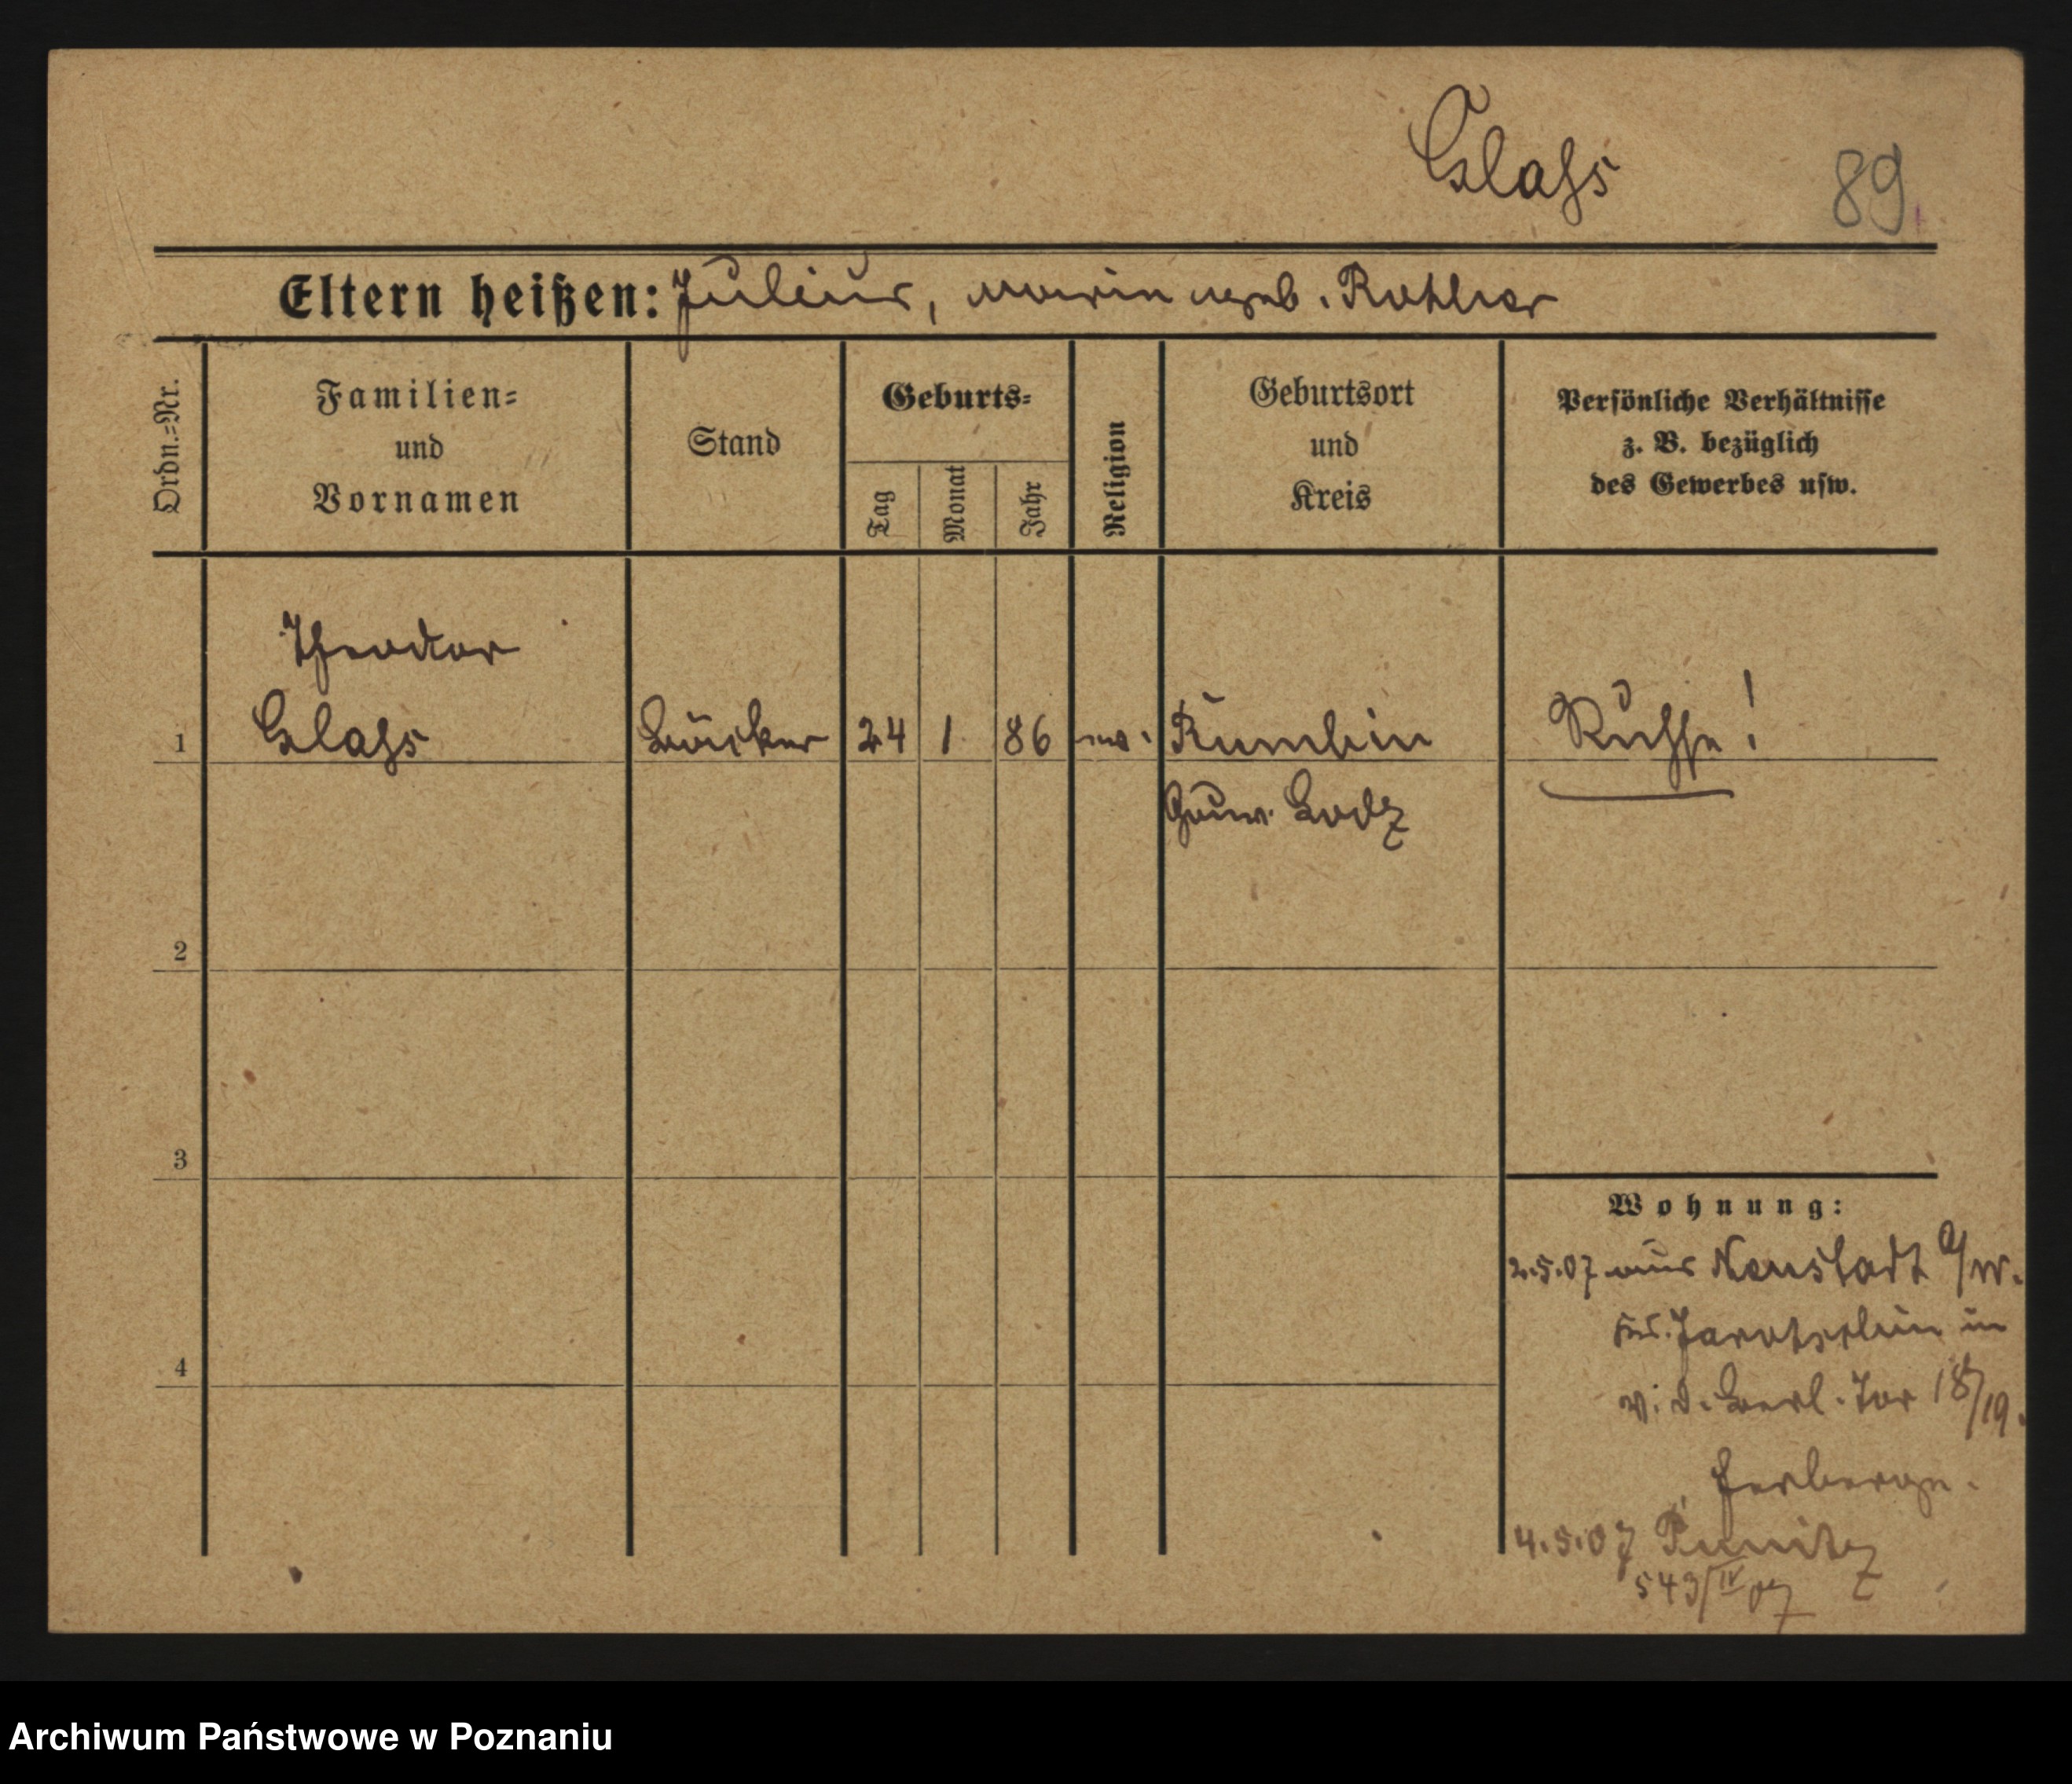 Glaß
89
Eltern heißen: Julius, Marie geb. Rohler
Ordn.=Nr.
Familien=
und
Vornamen
Stand
Geburts=
Tag
Monat
Jahr
Religion
Geburtsort
und
Kreis
Persönliche Verhältnisse
z. B. bezüglich
des Gewerbes usw.
Theodor
1 Glaß Bäcker 24 1 86 ev. Rußße!
Gouv. Lodz
2
3
4
Wohnung:
2.5.07 aus Neustadt a/W.
Jarotschin in
v. d. Berl. Tor 18/19.
Herberge.
4.5.07 Punitz
543/IV 07
Archiwum Państwowe w Poznaniu